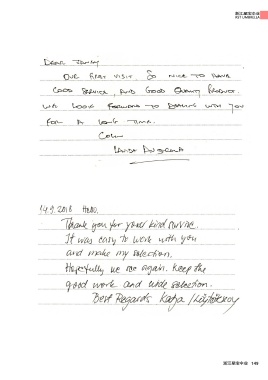 浙江星宝伞业
RST UMBRELLA
DEAR JENNY
OUR FIRST VISIT, SO NICE TO HAVE
GOOD SERVICE, AND GOOD QUALITY PRODUCT.
WE LOOK FORWARD TO DEALING WITH YOU
FOR A LONG TIME.
COLIN
14.9.2018 Hello.
Thank you for your kind service.
It was easy to work with you
and make my selection.
Hopefully we see again. Keep the
good work and wide selection.
Best Regards Katja
浙江星宝伞业 149